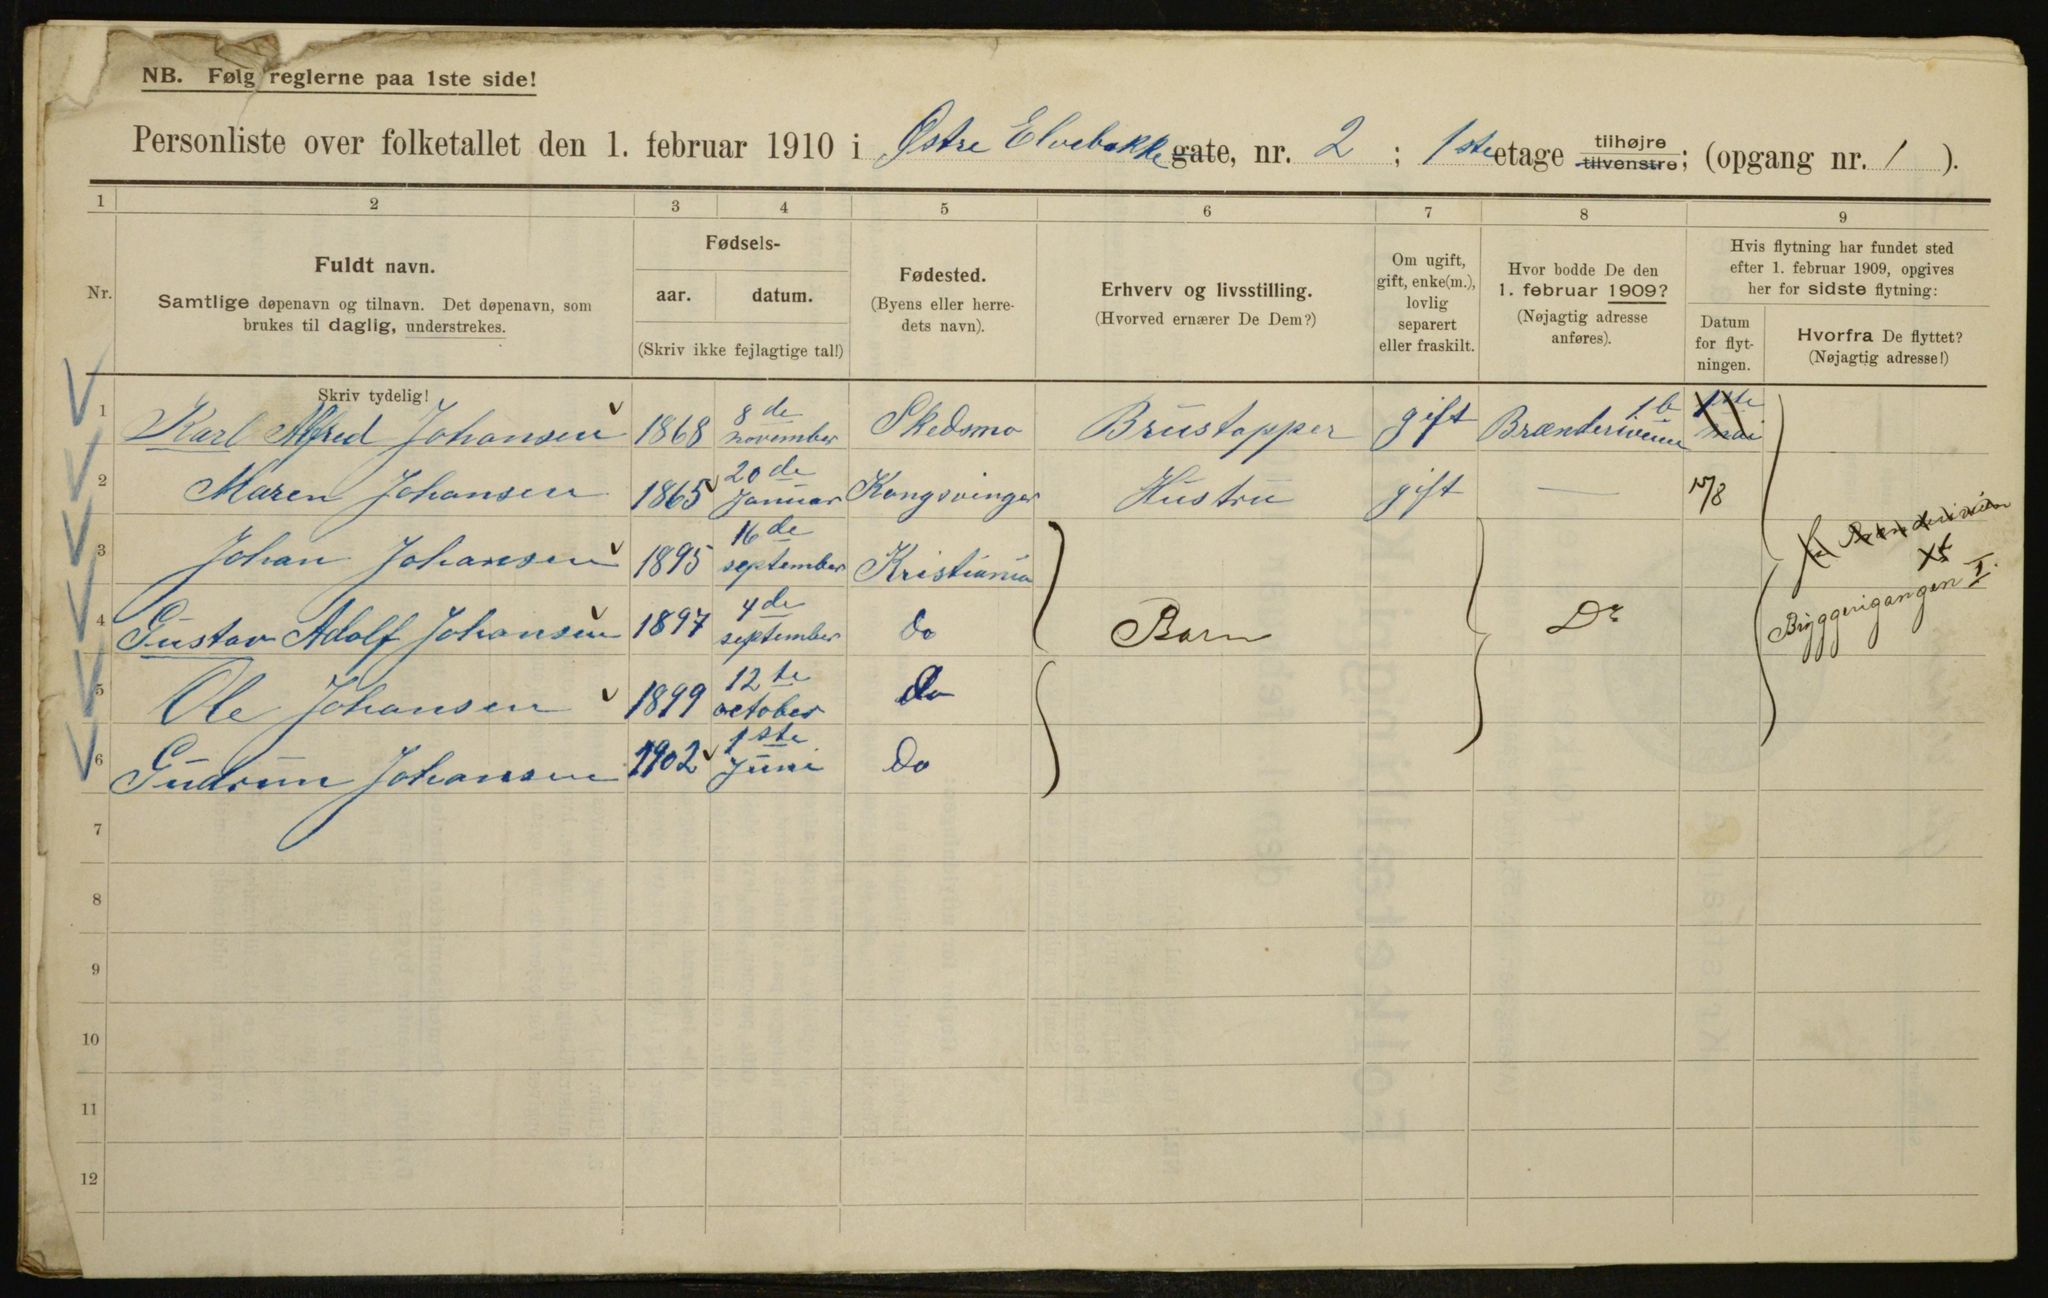 NB. Følg reglerne paa 1ste side!
Personliste over folketallet den 1. februar 1910 i Østre Elvebakke gate, nr. 2 ; 1ste etage tilhøjre tilvenstre; (opgang nr. 1 ).
1 2 3 4 5 6 7 8 9
Nr.
Fuldt navn.
Samtlige døpenavn og tilnavn. Det døpenavn, som
brukes til daglig, understrekes.
Skriv tydelig!
Fødsels-
aar. datum.
(Skriv ikke fejlagtige tal!)
Fødested.
(Byens eller herre-
dets navn).
Erhverv og livsstilling.
(Hvorved ernærer De Dem?)
Om ugift,
gift, enke(m.),
lovlig
separert
eller fraskilt.
Hvor bodde De den
1. februar 1909?
(Nøjagtig adresse
anføres).
Hvis flytning har fundet sted
efter 1. februar 1909, opgives
her for sidste flytning:
Datum
for flyt-
ningen.
Hvorfra De flyttet?
(Nøjagtig adresse!)
1 Karl Alfred Johansen 1868 8de november Skedsmo Brustapper gift 1 b 1ste mai
2 Maren Johansen 1865 20de Januar Kongsvinger Hustru gift —
3 Johan Johansen 1895 16de september Kristiania
4 Gustav Adolf Johansen 1897 4de september do Barn Do Bryggerigangen I.
5 Ole Johansen 1899 12te october do
6 Gudrun Johansen 1902 1ste Juni do
7
8
9
10
11
12